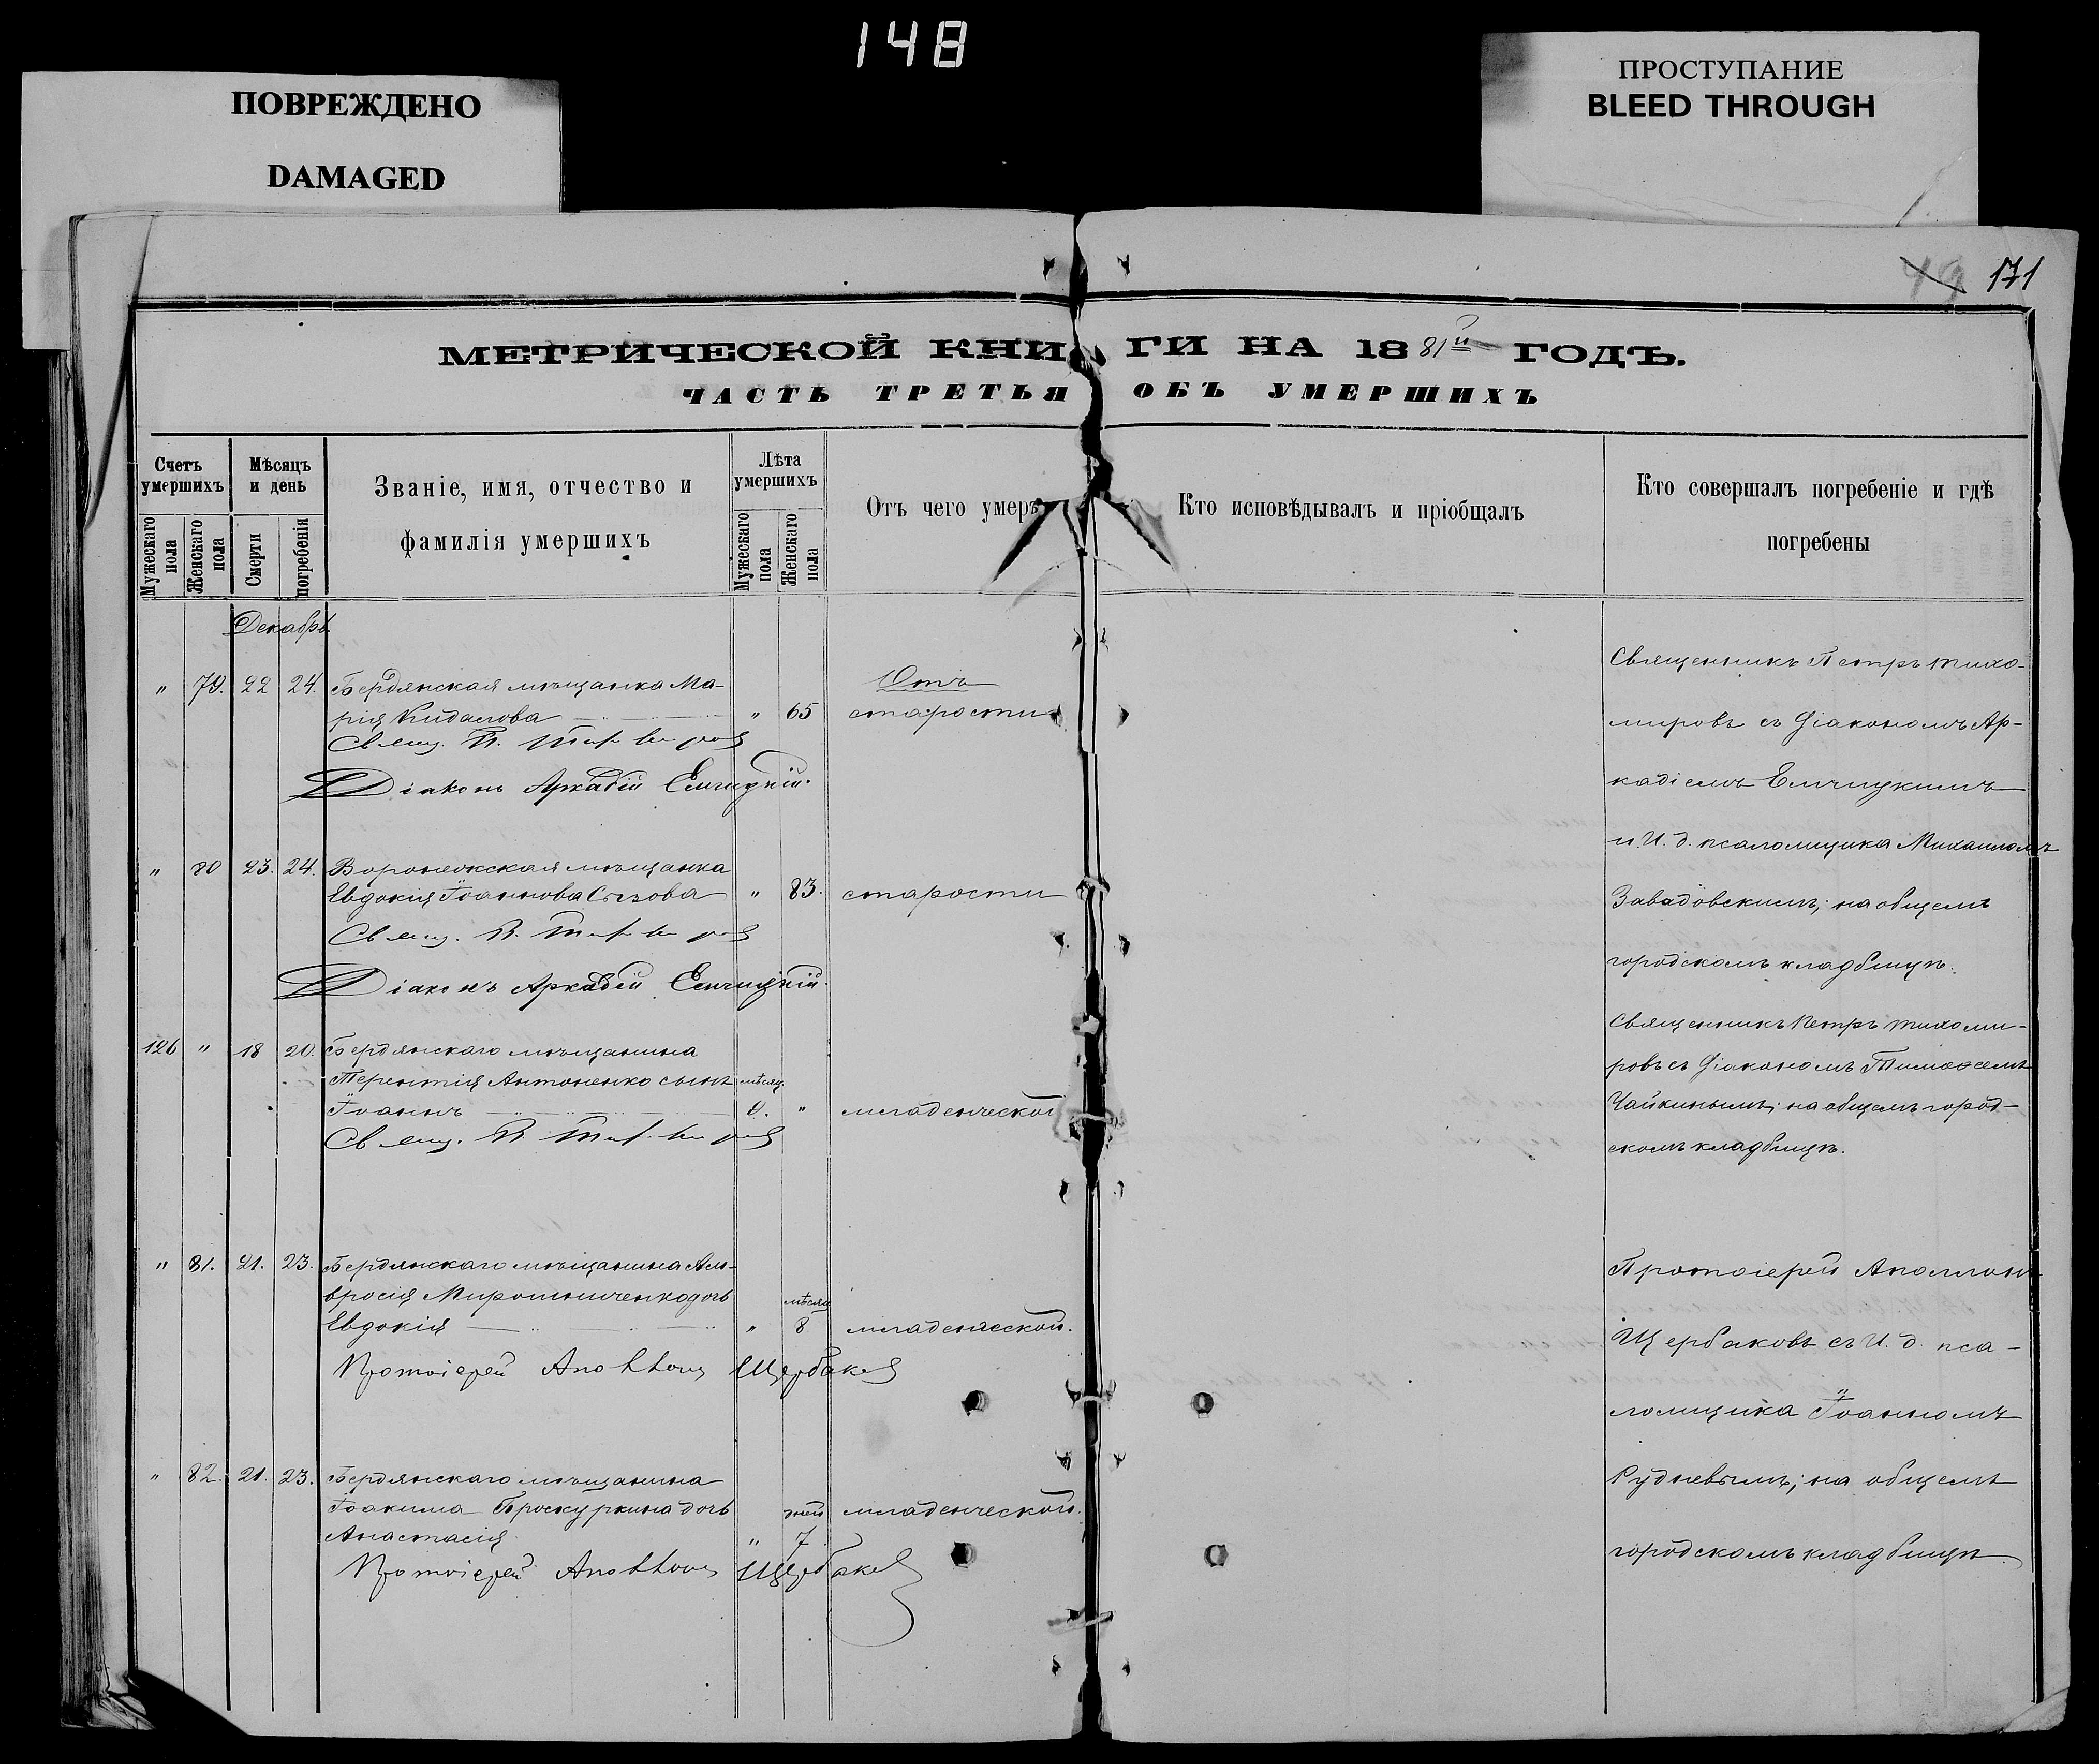 148
ПОВРЕЖДЕНО
DAMAGED
ПРОСТУПАНИЕ
BLEED THROUGH
49 171
МЕТРИЧЕСКОЙ КНИГИ НА 1881й ГОДЪ.
ЧАСТЬ ТРЕТЬЯ ОБЪ УМЕРШИХЪ
Счетъ умершихъ
Мужескаго пола
Женскаго пола
Мѣсяцъ и день
Смерти
погребенія
Званіе, имя, отчество и
фамилія умершихъ
Лѣта умершихъ
Мужескаго пола
Женскаго пола
Отъ чего умеръ
Кто исповѣдывалъ и пріобщалъ
Кто совершалъ погребеніе и гдѣ
погребены
Декабрь
" 79. 22 24. Бердянская мѣщанка Ма- Отъ
рія " 65 старости
Свящ. П. Тихомировъ
Діаконъ Аркадій Емчицкій.
Священникъ Петръ Тихо-
мировъ съ Діакономъ Ар-
кадіемъ Емчицкимъ
и И. д. псаломщика Михаиломъ
Завадовскимъ; на общемъ
городскомъ кладбищѣ.
" 80 23. 24. Воронежская мѣщанка
Евдокія Іоаннова Сизова " 83. старости
Свящ. П. Тихомировъ
Діаконъ Аркадій Емчицкій.
126 " 18 20. Бердянскаго мѣщанина
Терентія Антоненко сынъ мѣсяц.
Іоаннъ " младенческой
Свящ. П. Тихомировъ
Священникъ Петръ Тихоми-
ровъ съ Діакономъ Тимофеемъ
Чайкинымъ; на общемъ город-
скомъ кладбищѣ.
" 81. 21. 23. Бердянскаго мѣщанина Ам-
вросія Мирошниченко дочь мѣсяц
Евдокія " 8 младенческой.
Протоіерей Аполлонъ Щербаковъ
Протоіерей Аполлонъ
Щербаковъ съ И. д. пса-
ломщика Іоанномъ
Рудневымъ; на общемъ
городскомъ кладбищѣ
" 82. 21. 23. Бердянскаго мѣщанина
Іоакима Проскуркина дочь дней младенческой.
Анастасія " 7
Протоіерей Аполлонъ Щербаковъ